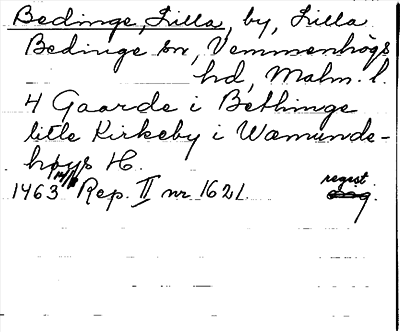 Bedinge, Lilla, by, Lilla
Bedinge sn, Vemmenhögs
hd, Malm. l.
4 Gaarde i Bethinge
litle Kirkeby i Wæmunde-
høgs H.
1463 14/6 Rep. II nr 1621. regist.